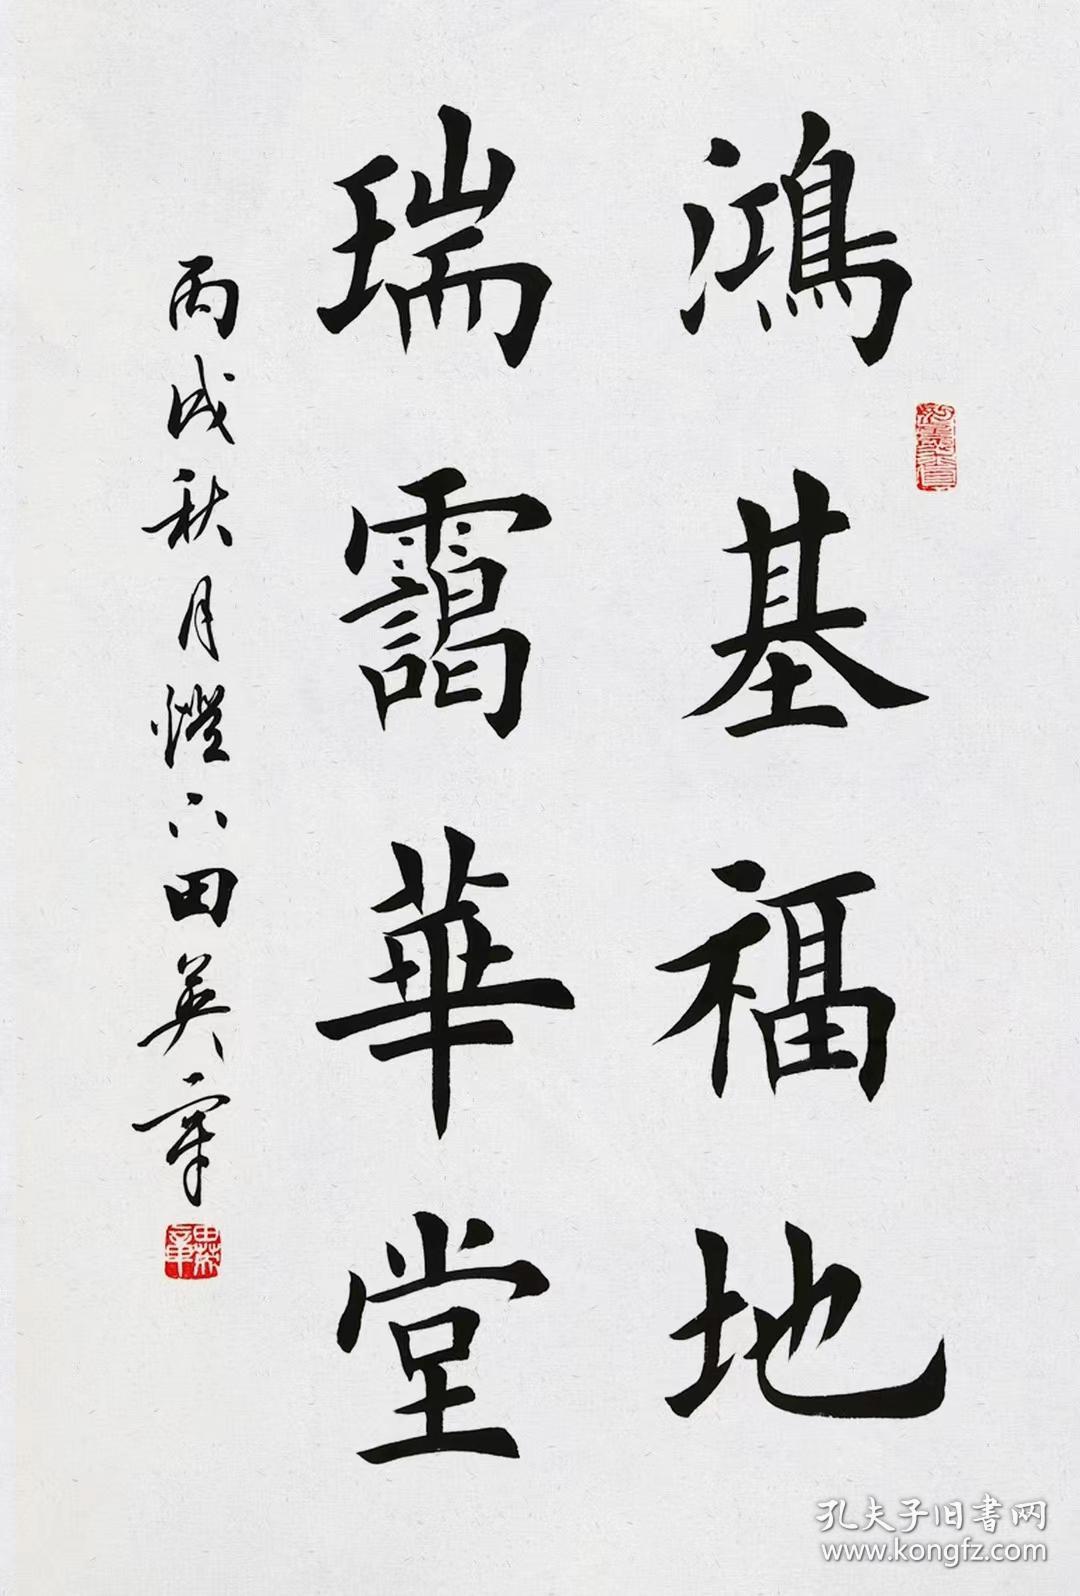 鴻基福地
瑞靄華堂
丙戌秋月燈下田英章
田英章
孔夫子旧書网
www.kongfz.com